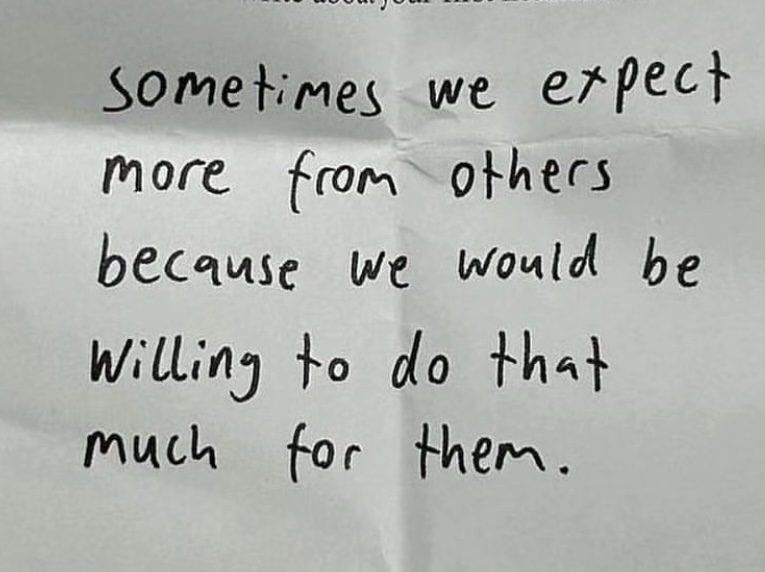 sometimes we expect
more from others
because we would be
willing to do that
much for them.